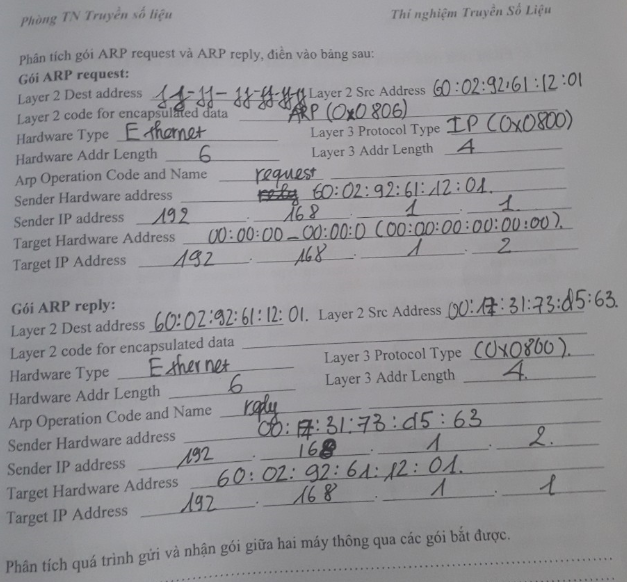 Phòng TN Truyền số liệu Thí nghiệm Truyền Số Liệu
Phân tích gói ARP request và ARP reply, điền vào bảng sau:
Gói ARP request:
Layer 2 Dest address ff-ff-ff-ff-ff-ff Layer 2 Src Address 60:02:92:61:12:01
Layer 2 code for encapsulated data ARP (0x0806)
Hardware Type Ethernet Layer 3 Protocol Type IP (0x0800)
Hardware Addr Length 6 Layer 3 Addr Length 4
Arp Operation Code and Name request
Sender Hardware address 60:02:92:61:12:01.
Sender IP address 192 . 168 . 1 . 1.
Target Hardware Address 00:00:00_00:00:0 (00:00:00:00:00:00).
Target IP Address 192 . 168 . 1 . 2
Gói ARP reply:
Layer 2 Dest address 60:02:92:61:12:01. Layer 2 Src Address 00:17:31:73:d5:63.
Layer 2 code for encapsulated data
Hardware Type Ethernet Layer 3 Protocol Type (0x0800).
Hardware Addr Length 6 Layer 3 Addr Length 4.
Arp Operation Code and Name reply
Sender Hardware address 00:17:31:73:d5:63
Sender IP address 192 . 168 . 1 . 2.
Target Hardware Address 60:02:92:61:12:01.
Target IP Address 192 . 168 . 1 . 1
Phân tích quá trình gửi và nhận gói giữa hai máy thông qua các gói bắt được.